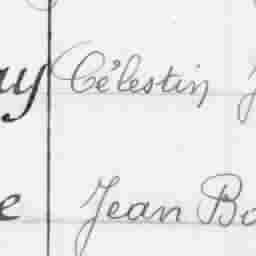 ay Célestin J
e Jean Bo